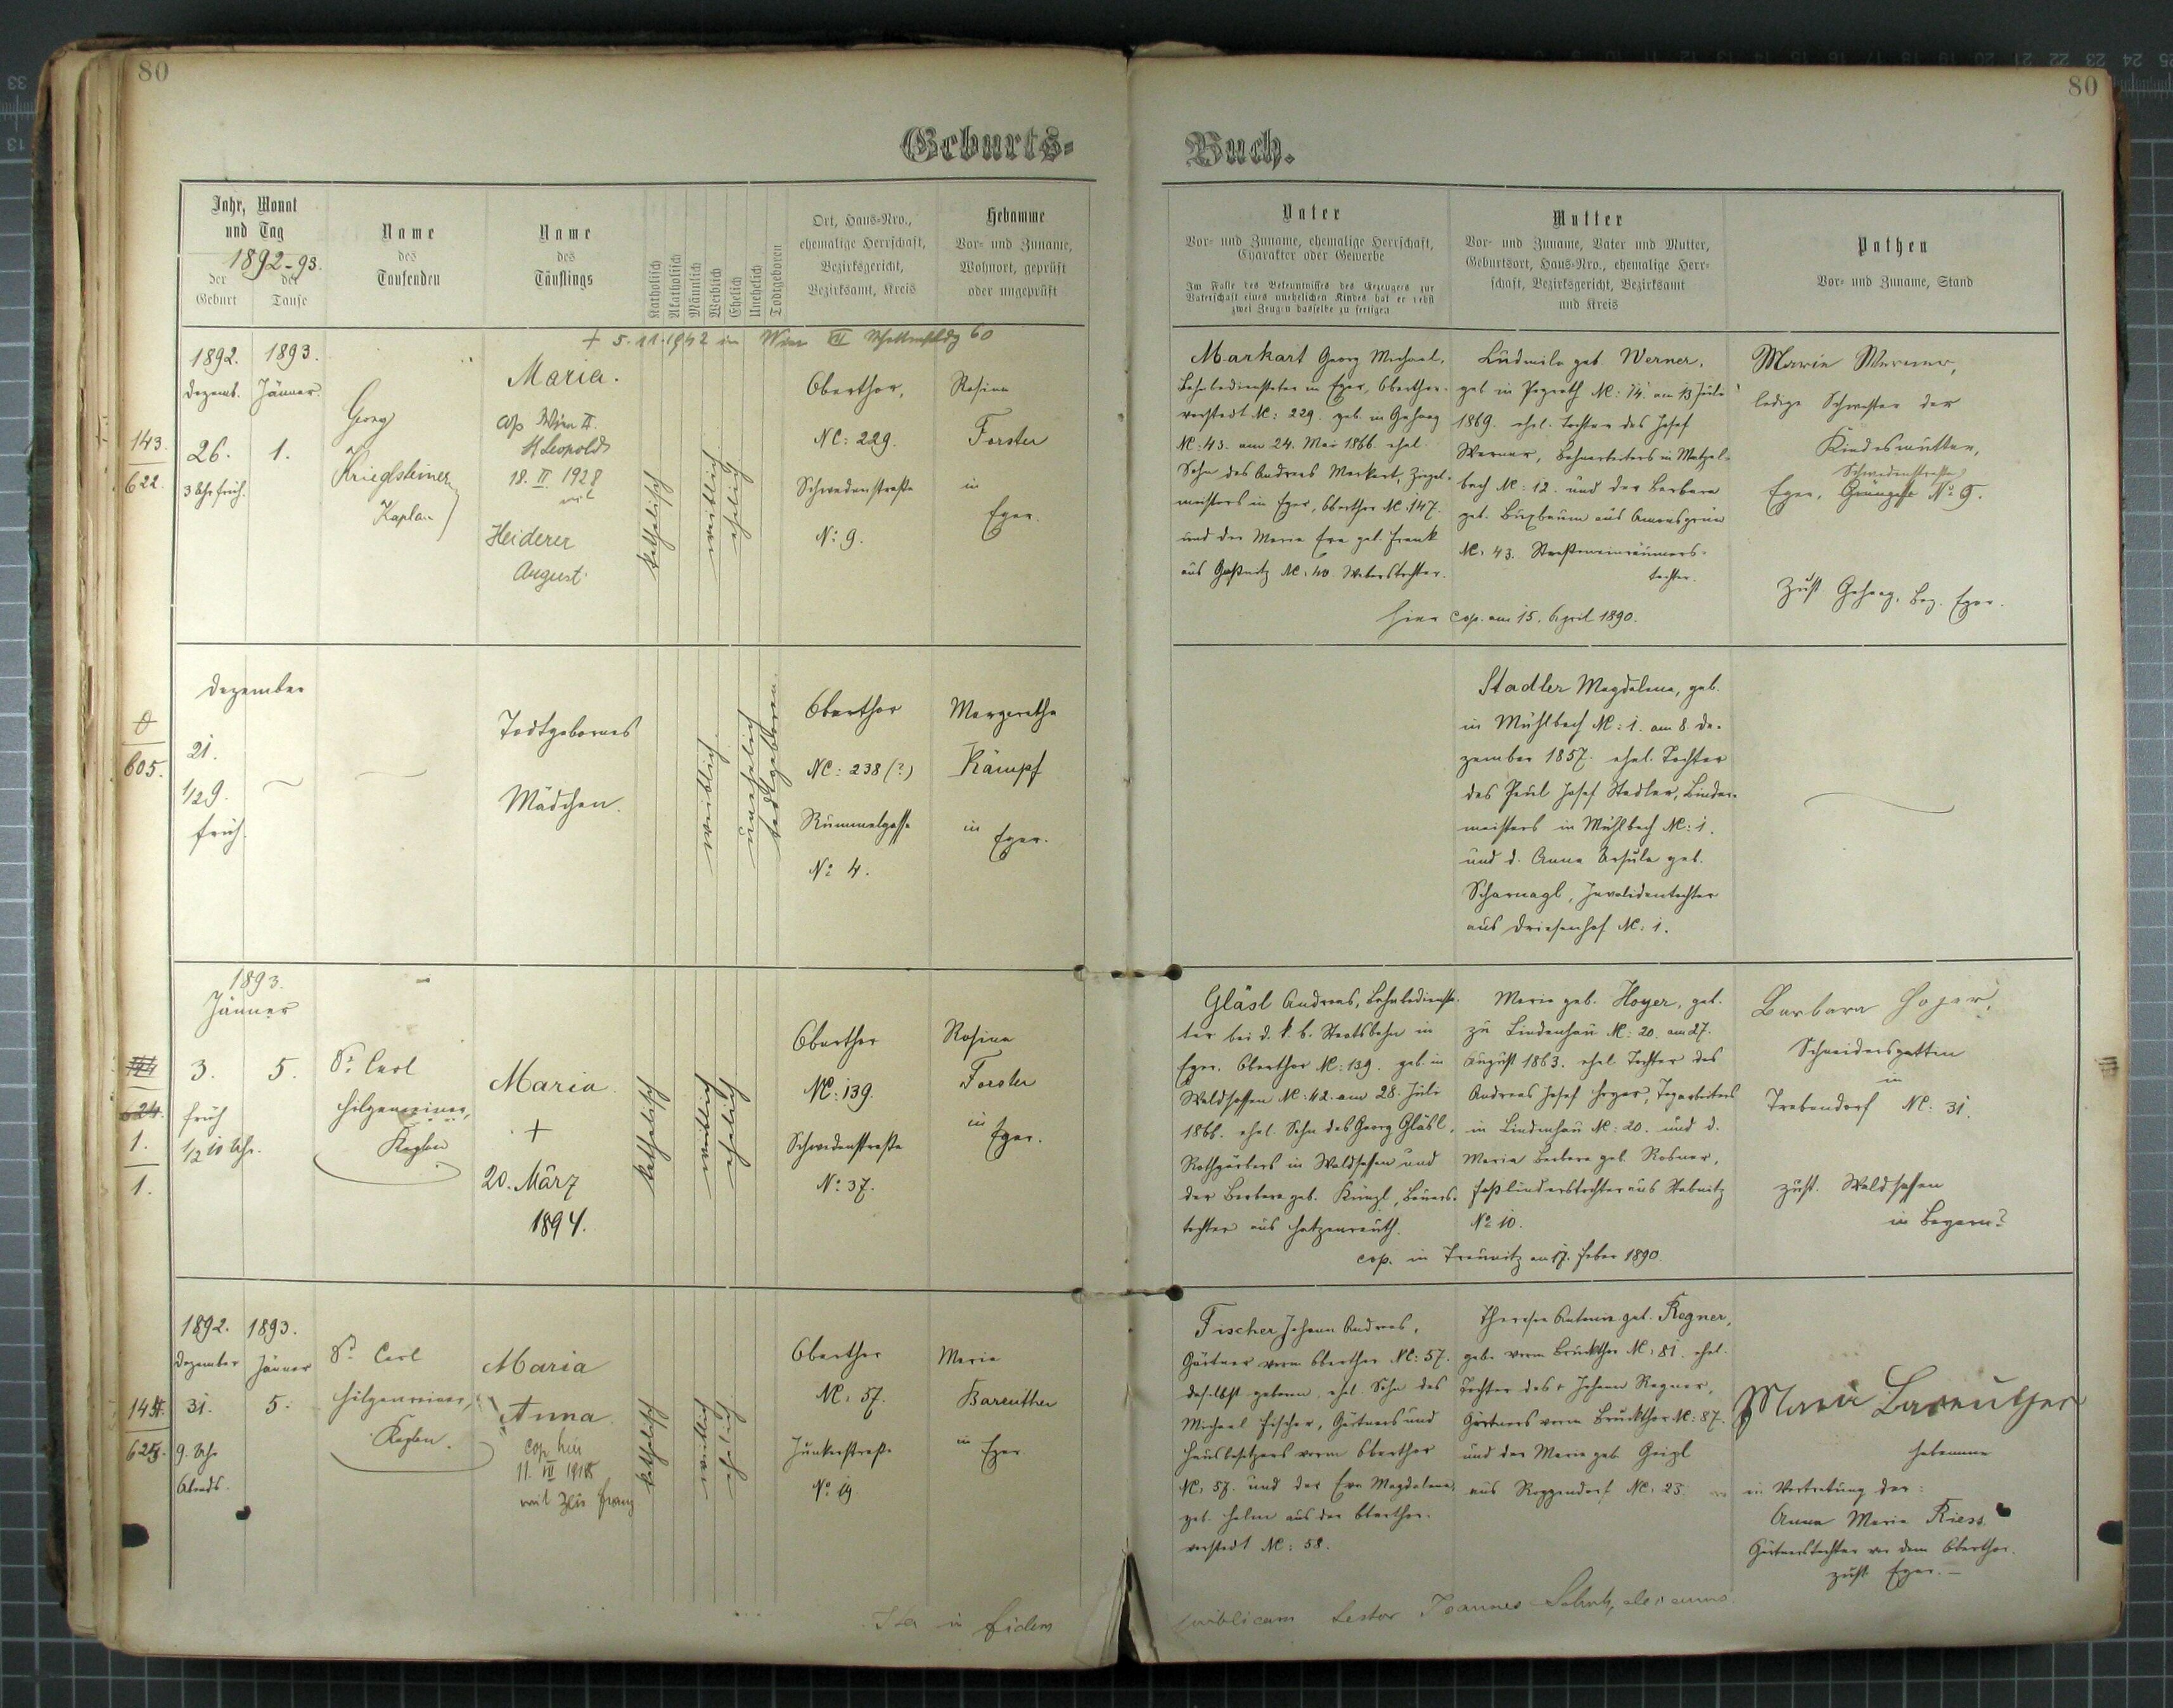 80
80
Geburts-
Buch.
Jahr, Monat
und Tag
1892-93.
der
Geburt
der
Taufe
Name
des
Taufenden
Name
des
Täuflings
Katholisch
Akatholisch
Männlich
Weiblich
Ehelich
Unehelich
Todtgeboren
Ort, Haus-Nro.,
ehemalige Herrschaft,
Bezirksgericht,
Bezirksamt, Kreis
Hebamme
Vor- und Zuname,
Wohnort, geprüft
oder ungeprüft
Vater
Vor- und Zuname, ehemalige Herrschaft,
Charakter oder Gewerbe
Im Falle des Bekenntnisses des Erzeugers zur
Vaterschaft eines unehelichen Kindes hat er nebst
zwei Zeugen dasselbe zu fertigen
Mutter
Vor- und Zuname, Vater und Mutter,
Geburtsort, Haus-Nro., ehemalige Herr-
schaft, Bezirksgericht, Bezirksamt
und Kreis
Pathen
Vor- und Zuname, Stand
+ 5.11.1942 in Wien VII 60
143.
622.
1892.
Dezemb.
26.
3 Uhr früh.
1893.
Jänner.
1.
Georg
Kriegelsteiner
Kaplan
Maria.
cop Wien II.
St Leopold
18. II 1928
mit
Heiderer
August
katholisch
weiblich
ehelich
Oberthor,
NC: 229.
Schwedenstraße
No: 9.
Rosina
Forster
in
Eger.
Markart Georg Michael,
Bahnbediensteter in Eger, Oberthor-
vorstadt NC: 229. geb. in Gehaag
NC: 43. am 24. Mai 1866. ehel.
Sohn des Andreas Markart, Ziegel-
meisters in Eger, Oberthor NC: 147.
und der Maria Eva geb. Frank
aus Gaßnitz NC: 40. Weberstochter.
Ludmila geb. Werner,
geb. in Pograth NC: 14. am 13 Juli
1869. ehel. Tochter des Josef
Werner, Bahnarbeiters in Matzel-
bach NC: 12. und der Barbara
geb. Buxbaum aus Amonsgrün
NC: 43. Straßeneinräumers-
tochter.
hier cop. am 15. April 1890.
Marie Werner,
ledige Schwester der
Kindesmutter,
Schwedenstraße
Eger, No 9.
Zust Gehaag, Bez. Eger.
0
605.
Dezember
21.
1/29.
früh.
Todtgebornes
Mädchen.
weiblich.
unehelich
todtgeboren.
Oberthor
NC: 238 (?)
Rummelgasse
No 4.
Margaretha
Kämpf
in
Eger.
Stadler Magdalena, geb.
in Mühlbach NC: 1. am 8. De-
zember 1857. ehel. Tochter
des Paul Josef Stadler, Binder-
meisters in Mühlbach NC: 1.
und d. Anna Ursula geb.
Scharnagl, Invalidentochter
aus Driesenhof NC: 1.
624.
1.
1.
1893.
Jänner
3.
früh
1/2 10 Uhr.
5.
P. Carl
Hilgenreiner,
Kaplan
Maria
+
20. März
1894.
katholisch
weiblich
ehelich
Oberthor
NC: 139.
Schwedenstraße
No: 37.
Rosina
Forster
in
Eger.
Gläsl Andreas, Bahnbedienste-
ter bei d. k. b. Staatsbahn in
Eger, Oberthor NC: 139. geb. in
Waldsassen NC: 42. am 28. Juli
1866. ehel. Sohn des Georg Gläsl,
Rothgärbers in Waldsassen und
der Barbara geb. Künzl, Bauers-
tochter aus Hatzenreuth.
Maria geb. Hoyer, geb.
zu Lindenhau NC: 20. am 27.
August 1863. ehel. Tochter des
Andreas Josef Hoyer, Tagarbeiters
in Lindenhau NC: 20. und d.
Maria Barbara geb. Rosner,
Faßbinderstochter aus Stabnitz
No 10.
cop. in Treunitz am 17. Feber 1890.
Barbara Hojer,
Schneidersgattin
in
Trebendorf NC: 31.
zust. Waldsassen
in Bayern?
625.
1892.
Dezember
31.
9. Uhr
Abends.
1893.
Jänner
5.
P. Carl
Hilgenreiner,
Kaplan.
Maria
Anna
cop hier
mit Franz
katholisch
weiblich
ehelich
Oberthor
NC: 57.
Junkerstraße
No: 19.
Maria
Bareuther
in Eger
Fischer Johann Andreas,
Gärtner vorm Oberthor NC: 57.
daselbst geboren, ehel. Sohn des
Michael Fischer, Gärtners und
Hausbesitzers vorm Oberthor
NC: 57. und der Eva Magdalena,
geb. Halm aus der Oberthor-
vorstadt NC: 58.
Theresia Antonia geb. Regner,
geb. vorm Bruckthor NC: 81. ehel.
Tochter des + Johann Regner,
Gärtners vorm Bruckthor NC: 87.
und der Maria geb. Geigl
aus Roggendorf NC: 25.
Maria Bareuther
Hebamme
in Vertretung der:
Anna Maria Riess,
Gärtnerstochter vor dem Oberthor.
zust. Eger.
Ita in fidem
publicam testor Joannes